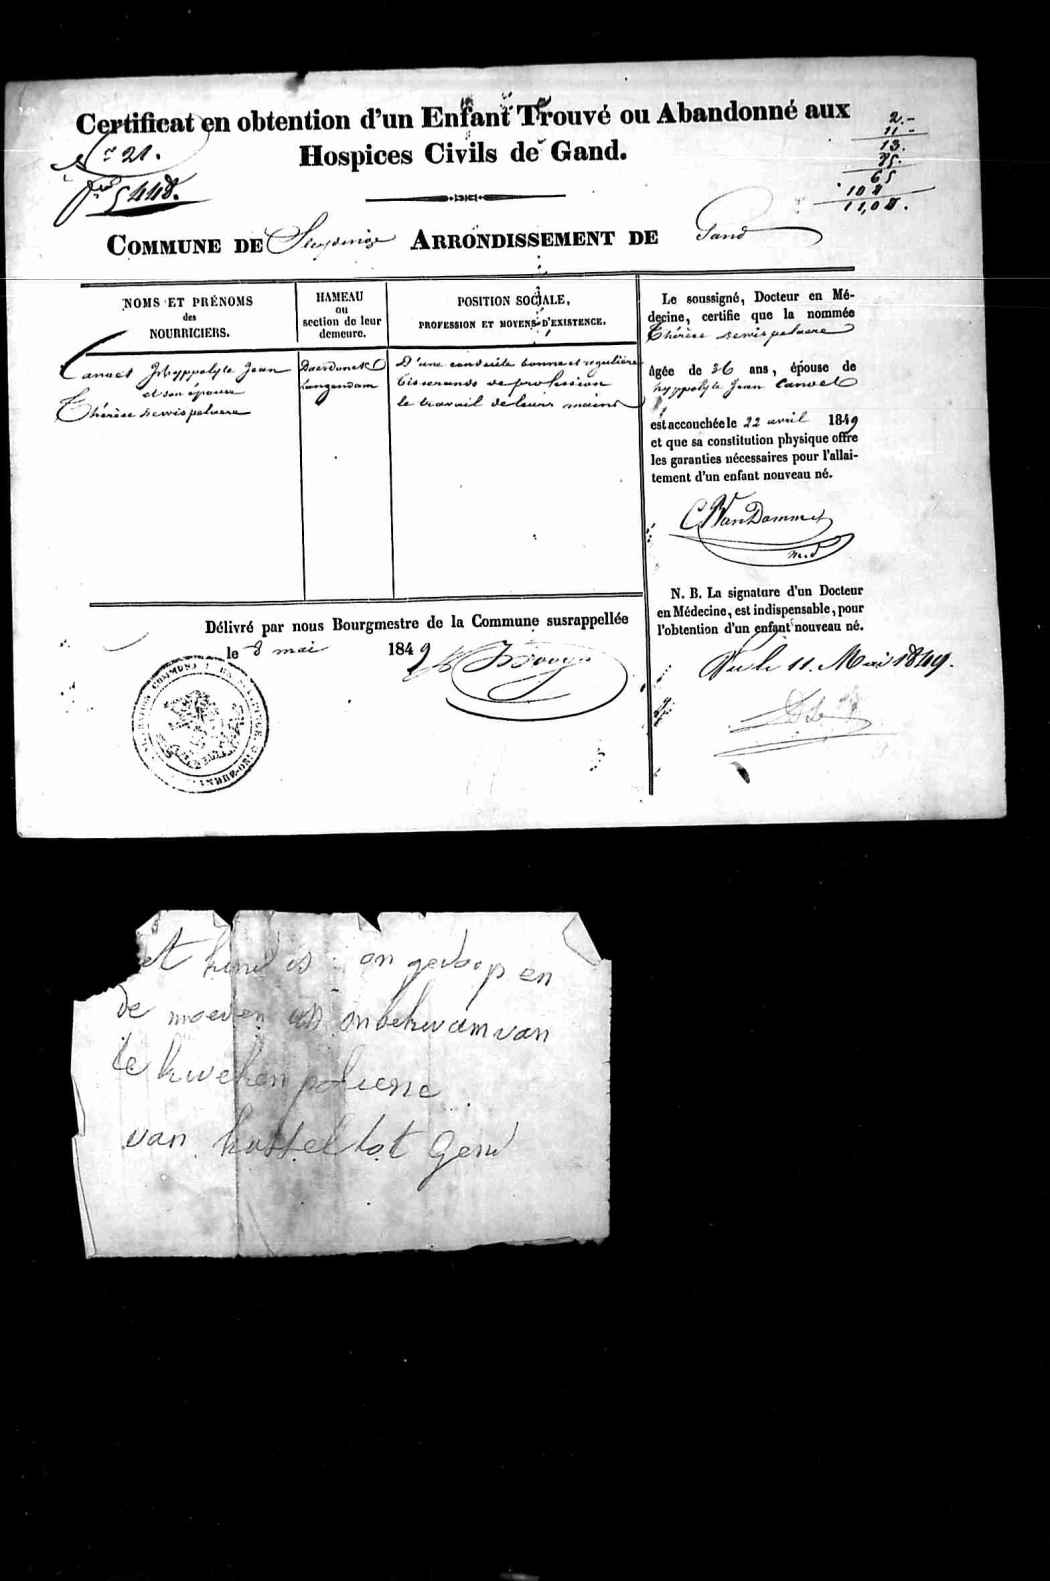 Certificat en obtention d'un Enfant Trouvé ou Abandonné aux
Hospices Civils de Gand.
21.
5448.
2.-
11-
13.
65
11,04.
COMMUNE DE Sleydinge ARRONDISSEMENT DE Gand
NOMS ET PRÉNOMS
des
NOURRICIERS.
HAMEAU
ou
section de leur
demeure.
POSITION SOCIALE,
PROFESSION ET MOYENS D'EXISTENCE.
Canvel Hyppolyte Jean
et son épouse
Thérèse
Daerdonck
Langendam
D'une conduite bonne et regulière
tisserands de profession
le travail de leurs mains
Le soussigné, Docteur en Mé-
decine, certifie que la nommée
Thérèse
âgée de 36 ans, épouse de
hyppolyte Jean Canvel
est accouchée le 22 avril 1849
et que sa constitution physique offre
les garanties nécessaires pour l'allai-
tement d'un enfant nouveau né.
C. Van Damme
m.d
N. B. La signature d'un Docteur
en Médecine, est indispensable, pour
l'obtention d'un enfant nouveau né.
Vu le 11. Mai 1849.
Délivré par nous Bourgmestre de la Commune susrappellée
le 8 mai 1849
et kind is on gedoop en
de moeder is onbekwam van
te kweken
van kasteel tot Gend